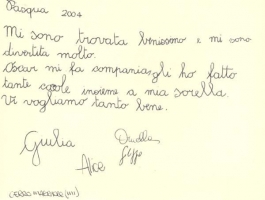 Pasqua 2004
Mi sono trovata benissimo e mi sono
divertita molto.
Oscar mi fa compania, gli ho fatto
tante insieme a mia sorella.
Vi vogliamo tanto bene.
Giulia
Alice